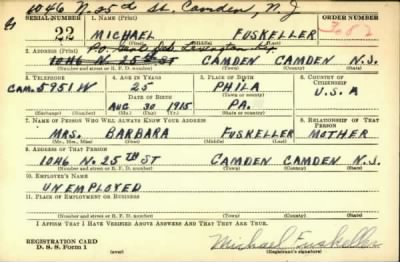 1046 N. 25th St. Camden, N. J
SERIAL NUMBER 1. NAME (Print) ORDER NUMBER
22 MICHAEL FUSKELLER
(First) (Middle) (Last)
2. ADDRESS (Print)
1046 N 25TH ST CAMDEN CAMDEN N.J.
(Number and street or R. F. D. number) (Town) (County) (State)
3. TELEPHONE 4. AGE IN YEARS 5. PLACE OF BIRTH 6. COUNTRY OF CITIZENSHIP
CAM. 5951W 25 PHILA U.S.A
DATE OF BIRTH (Town or county)
AUG 30 1915 PA.
(Exchange) (Number) (Mo.) (Day) (Yr.) (State or country)
7. NAME OF PERSON WHO WILL ALWAYS KNOW YOUR ADDRESS 8. RELATIONSHIP OF THAT PERSON
MRS. BARBARA FUSKELLER MOTHER
(Mr., Mrs., Miss) (First) (Middle) (Last)
9. ADDRESS OF THAT PERSON
1046 N. 25TH ST CAMDEN CAMDEN N.J.
(Number and street or R. F. D. number) (Town) (County) (State)
10. EMPLOYER'S NAME
UNEMPLOYED
11. PLACE OF EMPLOYMENT OR BUSINESS
(Number and street or R. F. D. number) (Town) (County) (State)
I AFFIRM THAT I HAVE VERIFIED ABOVE ANSWERS AND THAT THEY ARE TRUE.
REGISTRATION CARD
D. S. S. Form 1 (over) Michael Fuskeller
(Registrant's signature)